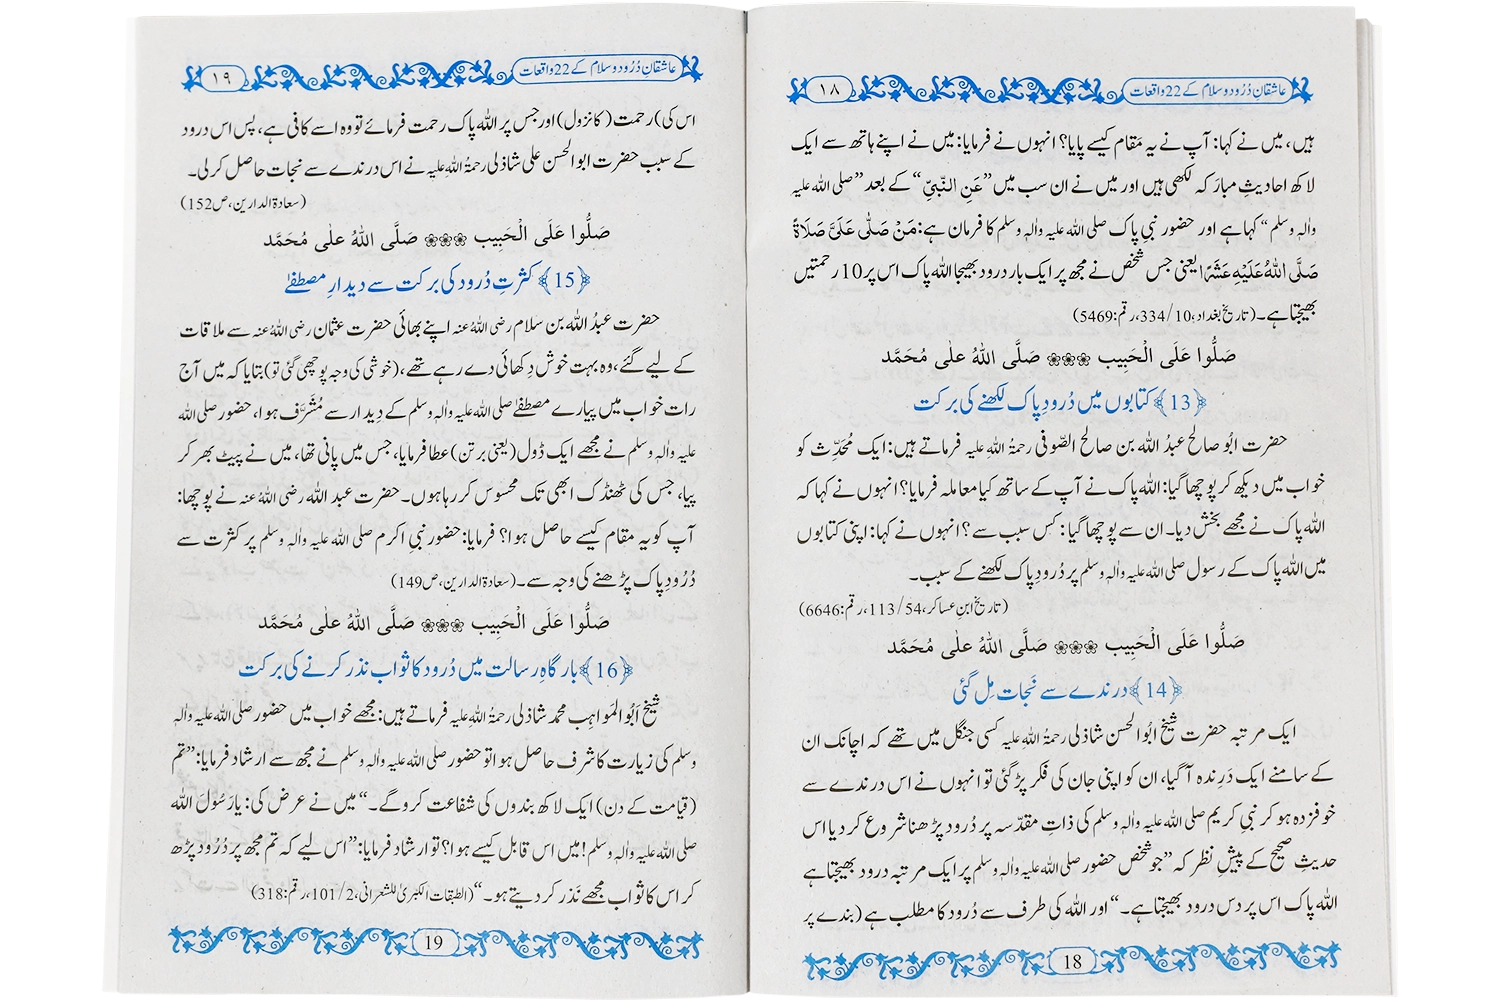 عاشقانِ دُرُود و سلام کے 22 واقعات
۱۸
ہیں، میں نے کہا: آپ نے یہ مَقام کیسے پایا؟ انہوں نے فرمایا: میں نے اپنے ہاتھ سے ایک
لاکھ احادیثِ مبارَکہ لکھی ہیں اور میں نے ان سب میں ”عَنِ النَّبِیِّ“ کے بعد ”صلی اللہ علیہ
واٰلہٖ وسلم“ کہا ہے اور حضور نبیِ پاک صلی اللہ علیہ واٰلہٖ وسلم کا فرمان ہے: مَنْ صَلّٰی عَلَیَّ صَلَاۃً
صَلَّی اللہُ عَلَیْہِ عَشْرًا یعنی جس شخص نے مجھ پر ایک بار درود بھیجا اللہ پاک اس پر 10 رحمتیں
بھیجتا ہے۔ (تاریخِ بغداد، 10/334، رقم: 5469)
صَلُّوا عَلَی الْحَبِیب ❀❀❀ صَلَّی اللہُ علٰی مُحَمَّد
﴿13﴾ کتابوں میں دُرُودِ پاک لکھنے کی برکت
حضرت ابُو صالح عبدُ اللہ بن صالح الصّوفی رحمۃُ اللہِ علیہ فرماتے ہیں: ایک مُحَدِّث کو
خواب میں دیکھ کر پوچھا گیا: اللہ پاک نے آپ کے ساتھ کیا معاملہ فرمایا؟ انہوں نے کہا کہ
اللہ پاک نے مجھے بخش دیا۔ ان سے پوچھا گیا: کس سبب سے؟ انہوں نے کہا: اپنی کتابوں
میں اللہ پاک کے رسول صلی اللہ علیہ واٰلہٖ وسلم پر دُرُودِ پاک لکھنے کے سبب۔
(تاریخ ابنِ عساکر، 54/113، رقم: 6646)
صَلُّوا عَلَی الْحَبِیب ❀❀❀ صَلَّی اللہُ علٰی مُحَمَّد
﴿14﴾ درندے سے نَجات مِل گئی
ایک مرتبہ حضرت شیخ ابُو الحسن شاذلی رحمۃُ اللہِ علیہ کسی جنگل میں تھے کہ اچانک ان
کے سامنے ایک دَرِندہ آگیا، ان کو اپنی جان کی فکر پڑ گئی تو انہوں نے اس درندے سے
خوفزدہ ہو کر نبیِ کریم صلی اللہ علیہ واٰلہٖ وسلم کی ذاتِ مقدّسہ پر دُرُود پڑھنا شروع کر دیا اس
حدیثِ صحیح کے پیشِ نظر کہ ”جو شخص حضور صلی اللہ علیہ واٰلہٖ وسلم پر ایک مرتبہ درود بھیجتا ہے
اللہ پاک اس پر دس درود بھیجتا ہے۔“ اور اللہ کی طرف سے دُرُود کا مطلب ہے (بندے پر
18
عاشقانِ دُرُود و سلام کے 22 واقعات
۱۹
اس کی) رحمت (کا نزول) اور جس پر اللہ پاک رحمت فرمائے تو وہ اسے کافی ہے، پس اس درود
کے سبب حضرت ابو الحسن علی شاذلی رحمۃُ اللہِ علیہ نے اس درندے سے نجات حاصل کرلی۔
(سعادۃ الدارین، ص152)
صَلُّوا عَلَی الْحَبِیب ❀❀❀ صَلَّی اللہُ علٰی مُحَمَّد
﴿15﴾ کثرتِ دُرُود کی برکت سے دیدارِ مصطفےٰ
حضرت عبدُ اللہ بن سلام رضی اللہُ عنہ اپنے بھائی حضرت عثمان رضی اللہُ عنہ سے ملاقات
کے لیے گئے، وہ بہت خوش دِکھائی دے رہے تھے، (خوشی کی وجہ پوچھی گئی تو) بتایا کہ میں آج
رات خواب میں پیارے مصطفےٰ صلی اللہ علیہ واٰلہٖ وسلم کے دِیدار سے مُشَرَّف ہوا، حضور صلی اللہ
علیہ واٰلہٖ وسلم نے مجھے ایک ڈول (یعنی برتن) عطا فرمایا، جس میں پانی تھا، میں نے پیٹ بھر کر
پیا، جس کی ٹھنڈک ابھی تک محسوس کر رہا ہوں۔ حضرت عبد اللہ رضی اللہُ عنہ نے پوچھا:
آپ کو یہ مقام کیسے حاصل ہوا؟ فرمایا: حضور نبیِ اکرم صلی اللہ علیہ واٰلہٖ وسلم پر کثرت سے
دُرُودِ پاک پڑھنے کی وجہ سے۔ (سعادۃ الدارین، ص149)
صَلُّوا عَلَی الْحَبِیب ❀❀❀ صَلَّی اللہُ علٰی مُحَمَّد
﴿16﴾ بارگاہِ رسالت میں دُرُود کا ثواب نذر کرنے کی برکت
شیخ اَبُو المَواہِب محمد شاذلی رحمۃُ اللہِ علیہ فرماتے ہیں: مجھے خواب میں حضور صلی اللہ علیہ واٰلہٖ
وسلم کی زیارت کا شرف حاصل ہوا تو حضور صلی اللہ علیہ واٰلہٖ وسلم نے مجھ سے ارشاد فرمایا: ”تم
(قیامت کے دن) ایک لاکھ بندوں کی شفاعت کروگے۔“ میں نے عرض کی: یارَسُولَ اللہ
صلی اللہ علیہ واٰلہٖ وسلم! میں اس قابل کیسے ہوا؟ تو ارشاد فرمایا: ”اس لیے کہ تم مجھ پر دُرُود پڑھ
کر اس کا ثواب مجھے نَذر کر دیتے ہو۔“ (الطبقات الکبریٰ للشعرانی، 2/101، رقم: 318)
19